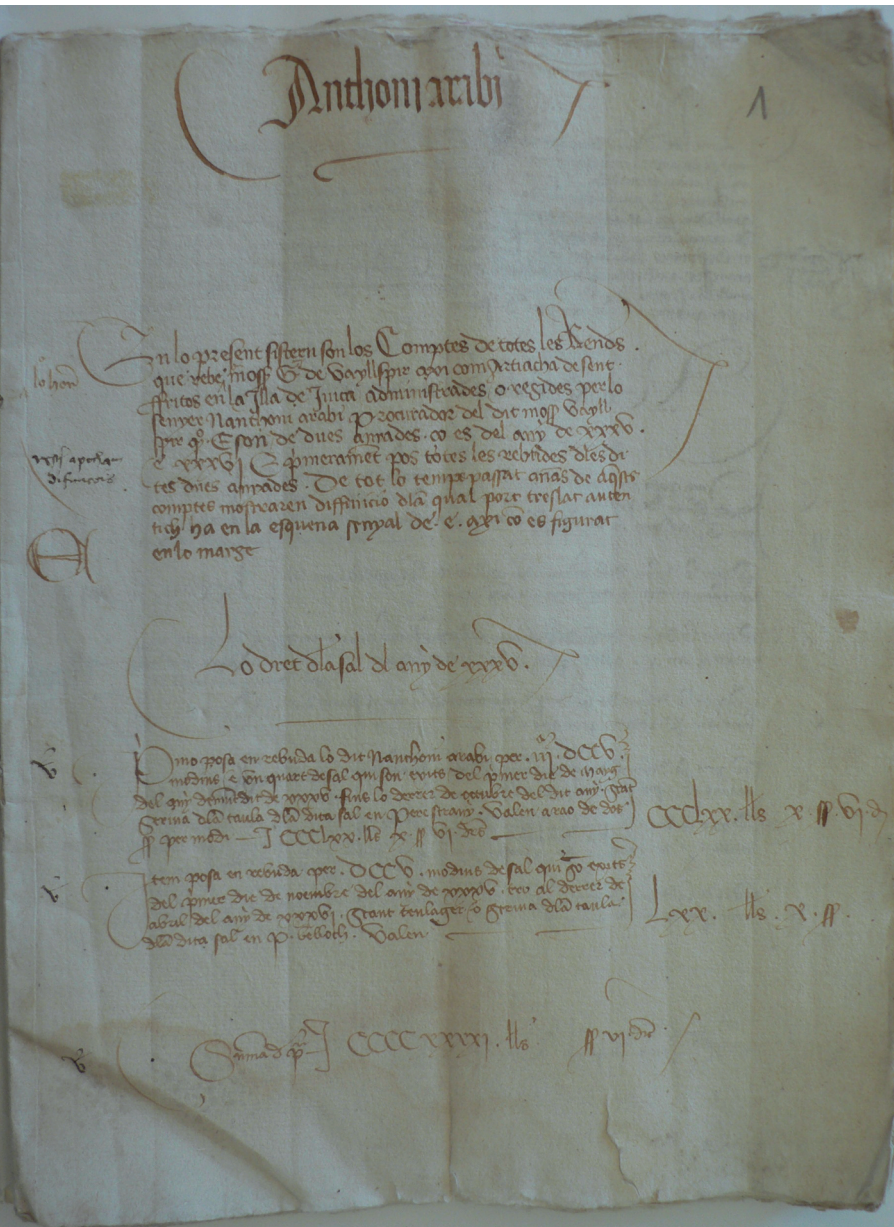 Anthoni arabi
1
En lo present sistern son los Comptes de totes les Rendes
que rebe moss G. de Vayllspir axi com Artiacha de sent
lo honr
ffritos en la Illa de Iviça administrades o regides per lo
senyer Nanthoni arabi procurador del dit moss Vayll
spir qº. E son de dues anyades. co es del any de xxxv.
e xxxvi E primerament pos totes les rebudes dles di
tes dues anyades. De tot lo temps passat abans de aqsts
comptes mostraren diffinicio dla qual port treslat auten
tich ha en la esquena senyal de. e. axi co es figurat
en lo marge
Lo dret dla sal dl any de xxxv.
Pmo posa en rebuda lo dit Nanthoni arabi per. iii. DCCV.
modins e un quart de sal qui son exits del pmer die de març
del any demunt dit de xxxv. fins lo derrer de octubre del dit any. stant
scriva dla taula dla dita sal en Pere strany. Valen a rao de dos
ss per modi — CCCLxx. lls x. ss vi. drs
CCCLxx. lls x. ss. vi. d
Item posa en rebuda per. DCCV. modins de sal qui son exits
del pmer die de noembre del any de xxxv. tro al derrer de
abril del any de xxxvi. stant scriva dla taula
dla dita sal en P. Valen
Lxx. lls. x. ss.
Suma d pa CCCCxxxxi. lls ss vi. drs